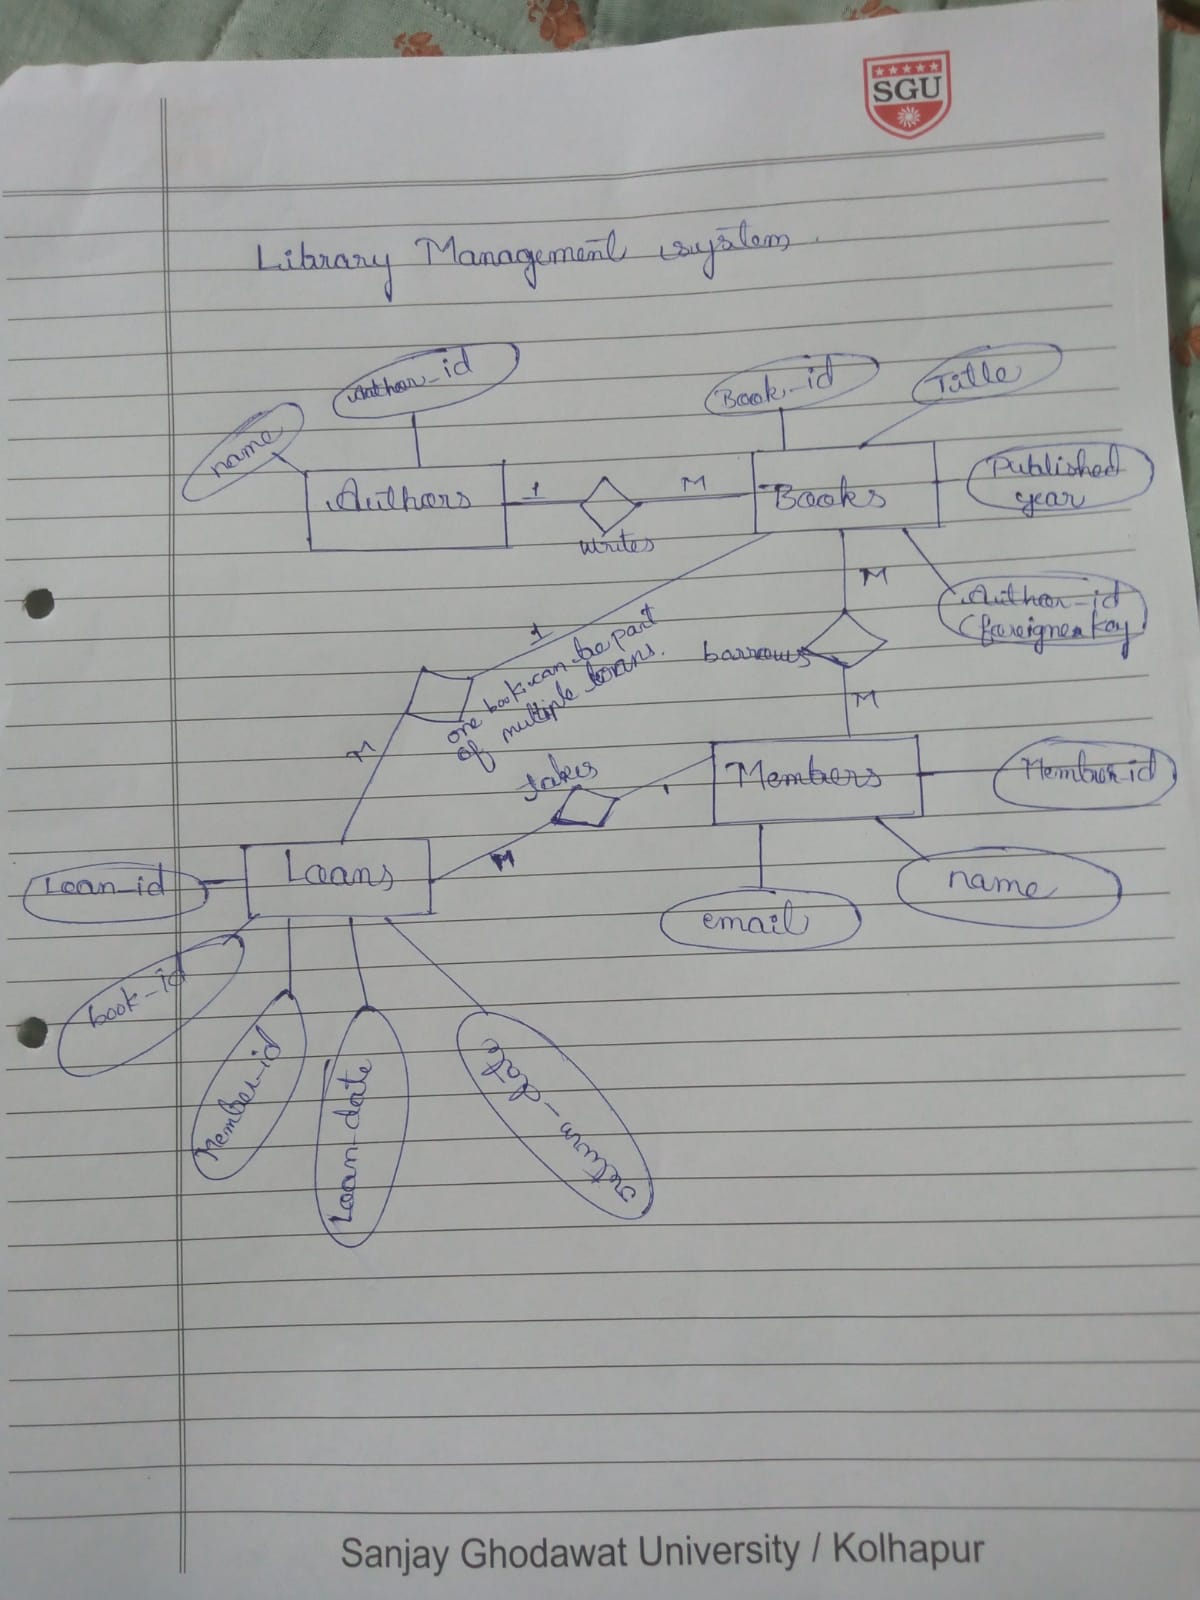 SGU
Library Management system.
Author_id
name
Authors
1
M
writes
Book_id
Title
Books
Published
year
Author_id
(foreigner key
M
barrows
M
1
one book can be part
of multiple loans.
M
takes
1
M
Members
Member_id
name
email
Loans
Loan_id
book_id
Member_id
Loan_date
return_date
Sanjay Ghodawat University / Kolhapur